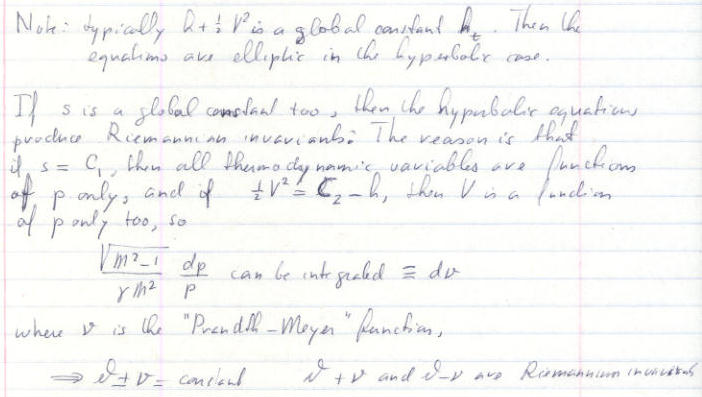 Note: typically h + ½ V² is a global constant hₜ. Then the
equations are elliptic in the hyperbolic case.
If s is a global constant too, then the hyperbolic equations
produce Riemannian invariants. The reason is that
if s = C₁, then all thermodynamic variables are functions
of p only, and if ½ V² = C₂ - h, then V is a function
of p only too, so
√(M²-1) / γM² dp/p can be integrated ≡ dν
where ν is the "Prandtl-Meyer" function,
⇒ ϑ ± ν = constant ϑ + ν and ϑ - ν are Riemannian invariants